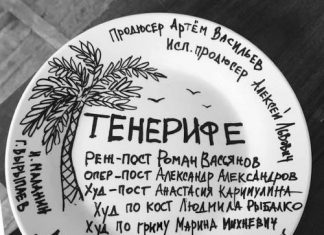 Продюсер Артём Васильев
Исп. продюсер Алексей
ТЕНЕРИФЕ
Реж-пост Роман Васянов
Опер-пост Александр Александров
Худ-пост Анастасия Каримулина
Худ по кост Людмила Рыбалко
Худ по гриму Марина Михневич
И. Маланин
Г. Вырыпаев